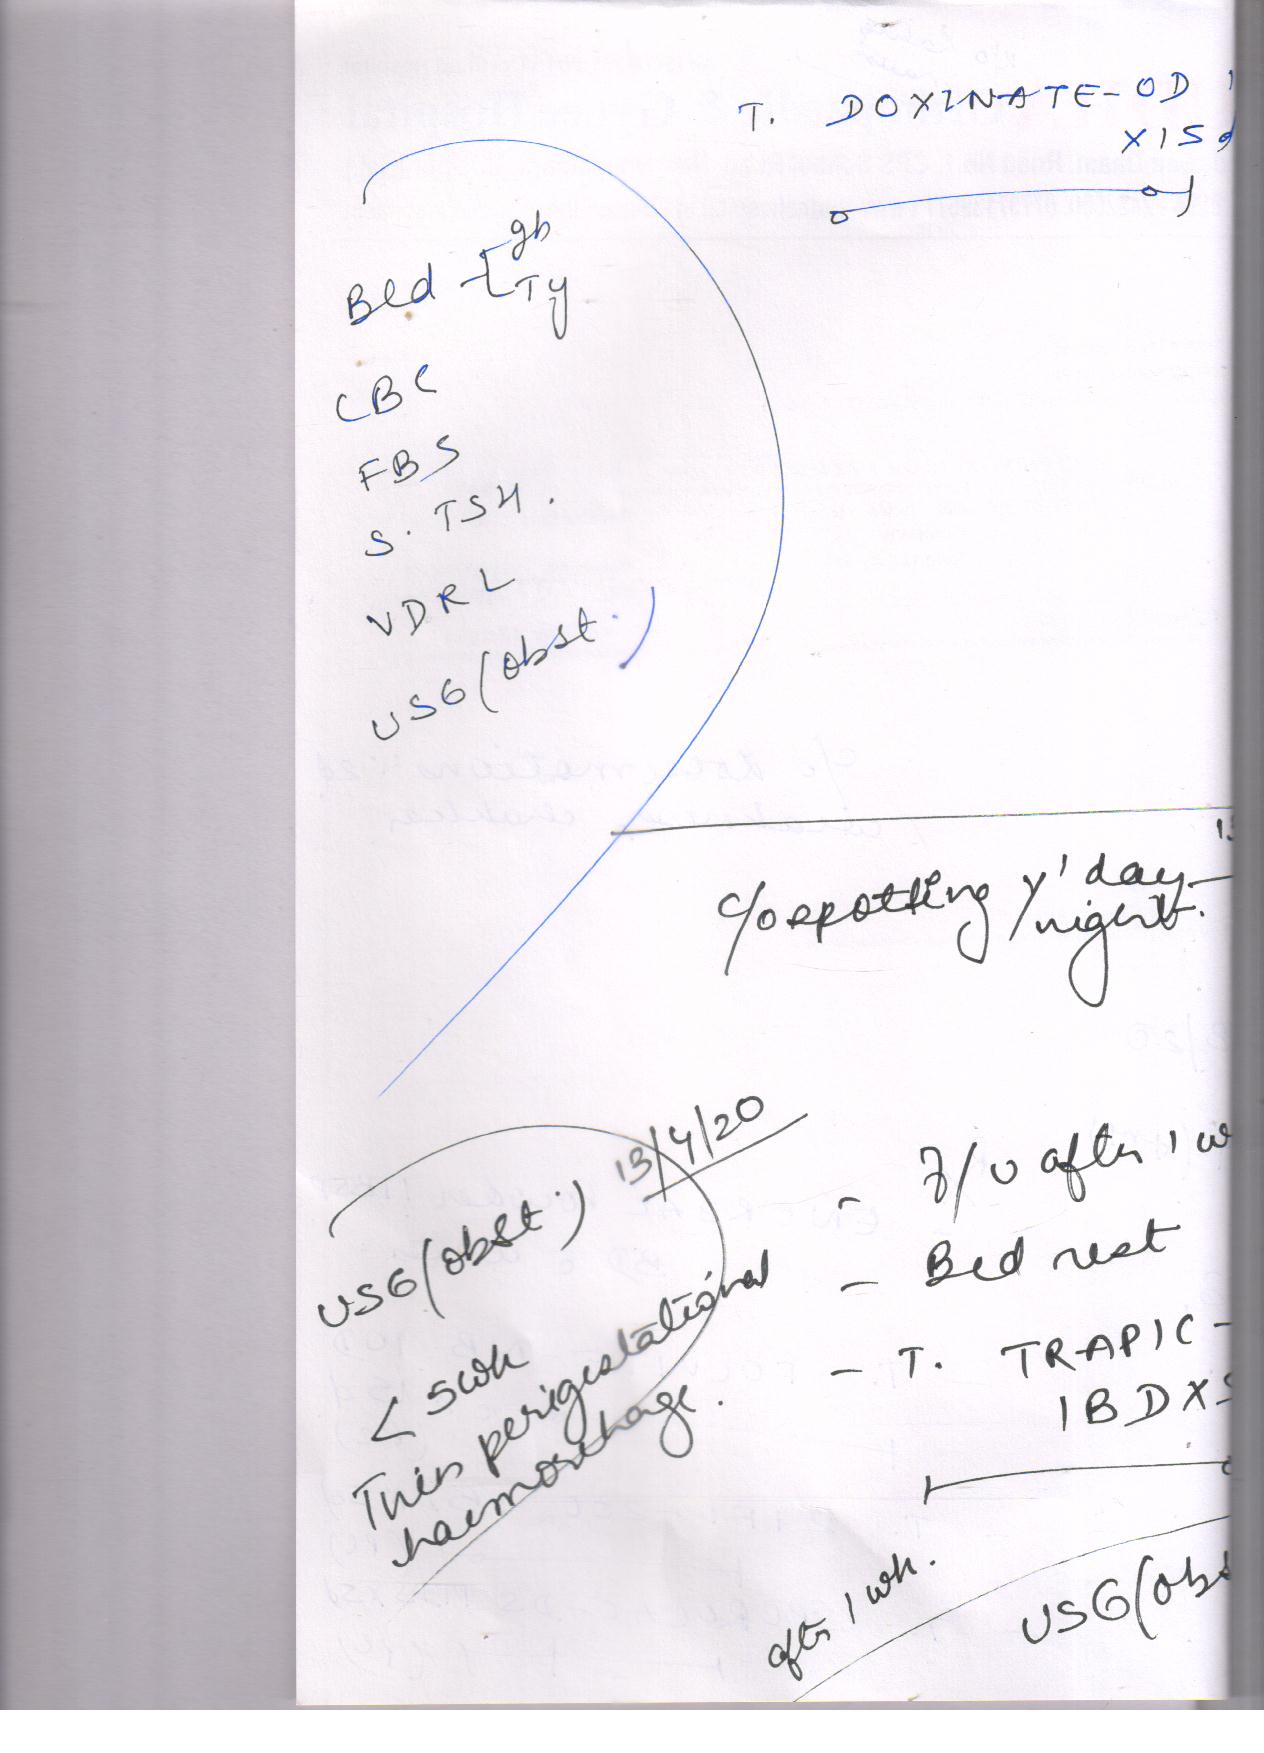 T. DOXINATE-OD 1
X15d
Bld - gb
Ty
CBC
FBS
S. TSH.
VDRL
USG (obst.)
13
c/o spotting y'day
night.
13/4/20
USG (obst.)
< 5wk
Thin perigestational
haemorrhage.
- F/U after 1 w
- Bed rest
- T. TRAPIC-
1BDX5
after 1 wk.
USG (obs